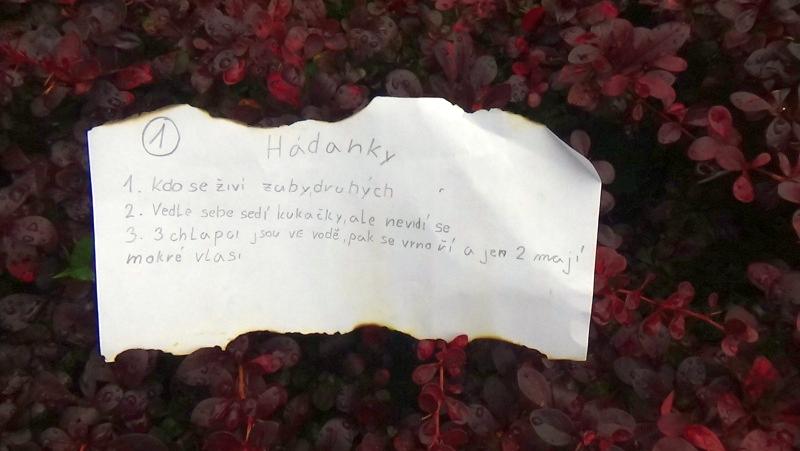 1 Hádanky
1. kdo se živí zuby,druhých
2. Vedle sebe sedí kukačky,ale nevidí se
3. 3 chlapci jsou ve vodě,pak se vrnoří a jen 2 mají
mokré vlasi